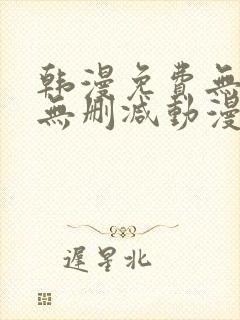 韩漫免費無
無删减動漫
遲星北